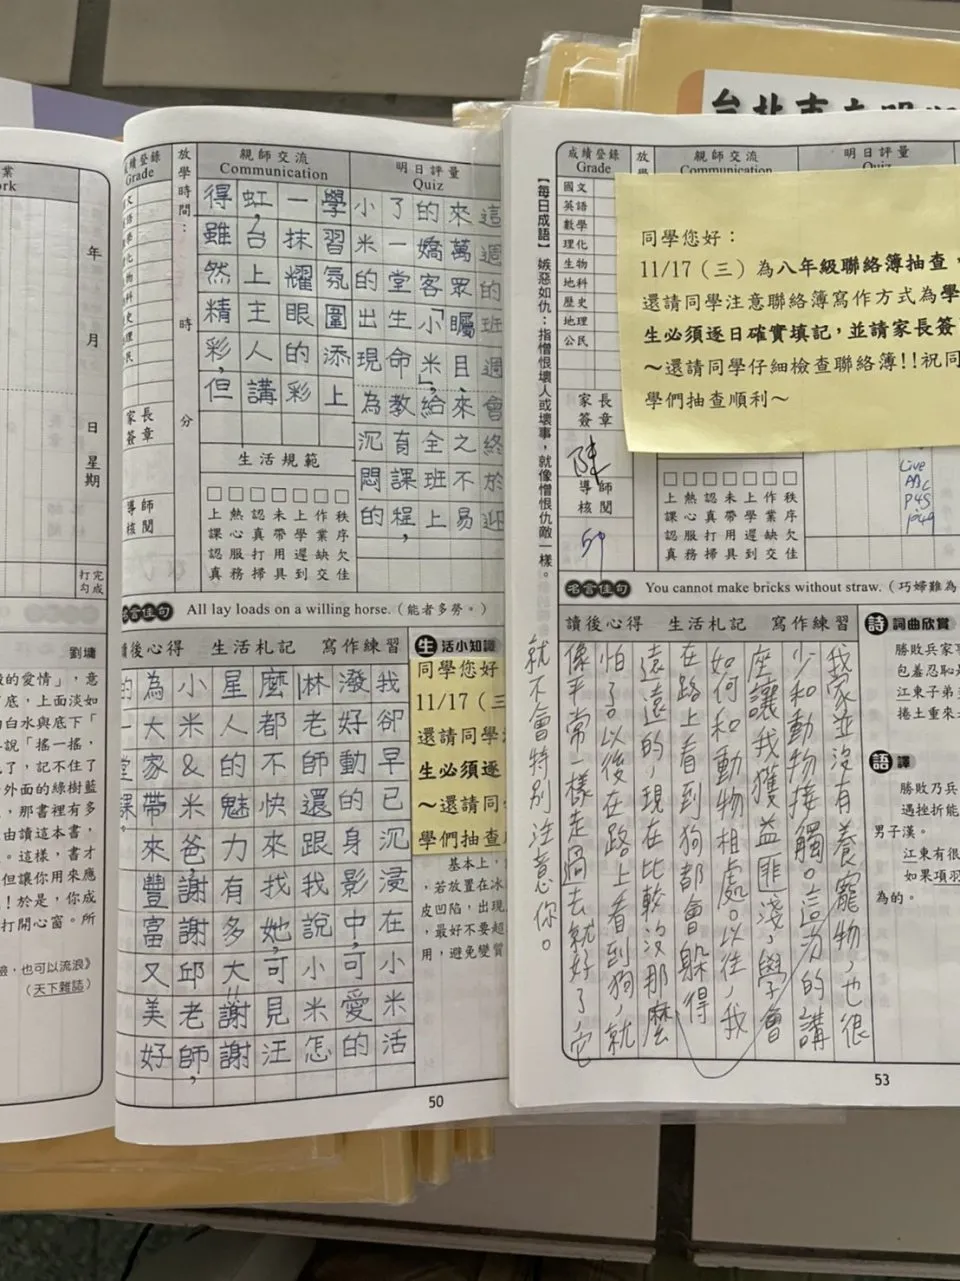 台北市
年
月
日
星期
打勾
完成
劉墉
的愛情」，意
底，上面淡如
白水與底下「
說「搖一搖，
了，記不住了
外面的綠樹藍
，那書裡有多
由讀這本書，
。這樣，書才
但讓你用來應
！於是，你成
打開心窗。所
，也可以流浪》
（天下雜誌）
成績登錄
Grade
放學時間：
時
分
親師交流
Communication
明日評量
Quiz
家長簽章
導師核閱
這週的班週會終於迎
來萬眾矚目、來之不易
的嬌客「小米」，給全班上
了一堂生命教育課程，
小米的出現為沉悶的
學習氛圍添上
一抹耀眼的彩
虹，台上主人講
得雖然精彩，但
生活規範
秩序欠佳
作業缺交
上學遲到
未帶用具
認真打掃
熱心服務
上課認真
名言佳句
All lay loads on a willing horse.（能者多勞。）
讀後心得　生活札記　寫作練習
我卻早已沉浸在小米活
潑好動的身影中，可愛的
林老師還跟我說小米怎
麼都不快來找她，可見汪
星人的魅力有多大!!謝謝
小米&米爸，謝謝邱老師，
為大家帶來豐富又美好
的一堂課。
生活小知識
同學您好
11/17（三
還請同學
生必須逐
～還請同
學們抽查
基本上，
，若放置在冰
皮凹陷，出現
，最好不要超
用，避免變質
50
【每日成語】嫉惡如仇：指憎恨壞人或壞事，就像憎恨仇敵一樣。
成績登錄
Grade
國文
英語
數學
理化
生物
地科
歷史
地理
公民
家長簽章
陳
導師核閱
邱
親師交流
Communication
明日評量
同學您好：
11/17（三）為八年級聯絡簿抽查，
還請同學注意聯絡簿寫作方式為學
生必須逐日確實填記，並請家長簽
～還請同學仔細檢查聯絡簿!!祝同
學們抽查順利～
Live
秩序欠佳
作業缺交
上學遲到
未帶用具
認真打掃
熱心服務
上課認真
名言佳句
You cannot make bricks without straw.（巧婦難為
讀後心得　生活札記　寫作練習
我家並沒有養寵物，也很
少和動物接觸。這次的講
座讓我獲益匪淺，學會
如何和動物相處。以往，我
在路上看到狗都會躲得
遠遠的，現在比較沒那麼
怕了。以後在路上看到狗，就
像平常一樣走過去就好了，它
就不會特別注意你。
詩詞曲欣賞
勝敗兵家事
包羞忍恥是
江東子弟多
捲土重來
語譯
勝敗乃兵
遇挫折能
男子漢。
江東有很
如果項羽
為的。
53